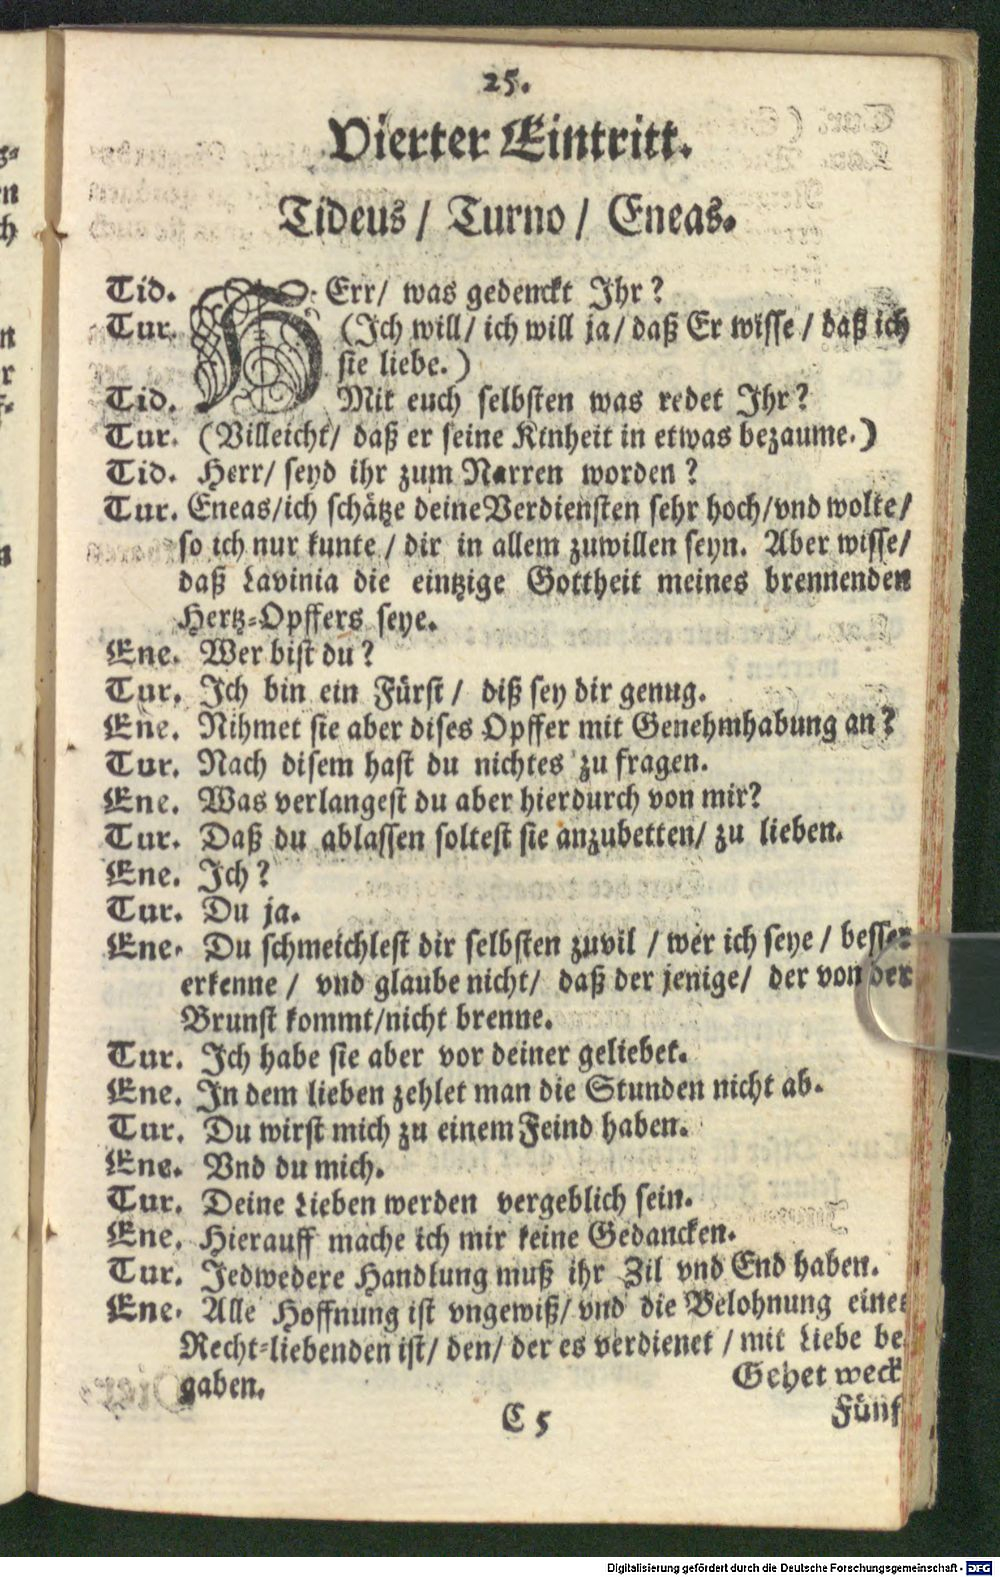 25.
Vierter Eintritt.
Tideus / Turno / Eneas.
Tid. HErr/ was gedenckt Ihr?
Tur. (Ich will/ ich will ja/ daß Er wisse / daß ich
sie liebe.)
Tid. Mit euch selbsten was redet Ihr?
Tur. (Villeicht/ daß er seine Kinheit in etwas bezaume.)
Tid. Herr/ seyd ihr zum Narren worden?
Tur. Eneas/ich schätze deine Verdiensten sehr hoch/vnd wolte/
so ich nur kunte / dir in allem zuwillen seyn. Aber wisse/
daß Lavinia die eintzige Gottheit meines brennenden
Hertz-Opffers seye.
Ene. Wer bist du?
Tur. Ich bin ein Fürst / diß sey dir genug.
Ene. Nihmet sie aber dises Opffer mit Genehmhabung an?
Tur. Nach disem hast du nichtes zu fragen.
Ene. Was verlangest du aber hierdurch von mir?
Tur. Daß du ablassen soltest sie anzubetten/ zu lieben.
Ene. Ich?
Tur. Du ja.
Ene. Du schmeichlest dir selbsten zuvil / wer ich seye / besser
erkenne / vnd glaube nicht/ daß der jenige/ der von der
Brunst kommt/nicht brenne.
Tur. Ich habe sie aber vor deiner geliebet.
Ene. In dem lieben zehlet man die Stunden nicht ab.
Tur. Du wirst mich zu einem Feind haben.
Ene. Vnd du mich.
Tur. Deine Lieben werden vergeblich sein.
Ene. Hierauff mache ich mir keine Gedancken.
Tur. Jedwedere Handlung muß ihr Zil vnd End haben.
Ene. Alle Hoffnung ist vngewiß/ vnd die Belohnung eines
Recht-liebenden ist/ den/ der es verdienet / mit Liebe be
gaben. Gehet weck
C 5 Fünf
Digitalisierung gefördert durch die Deutsche Forschungsgemeinschaft - DFG